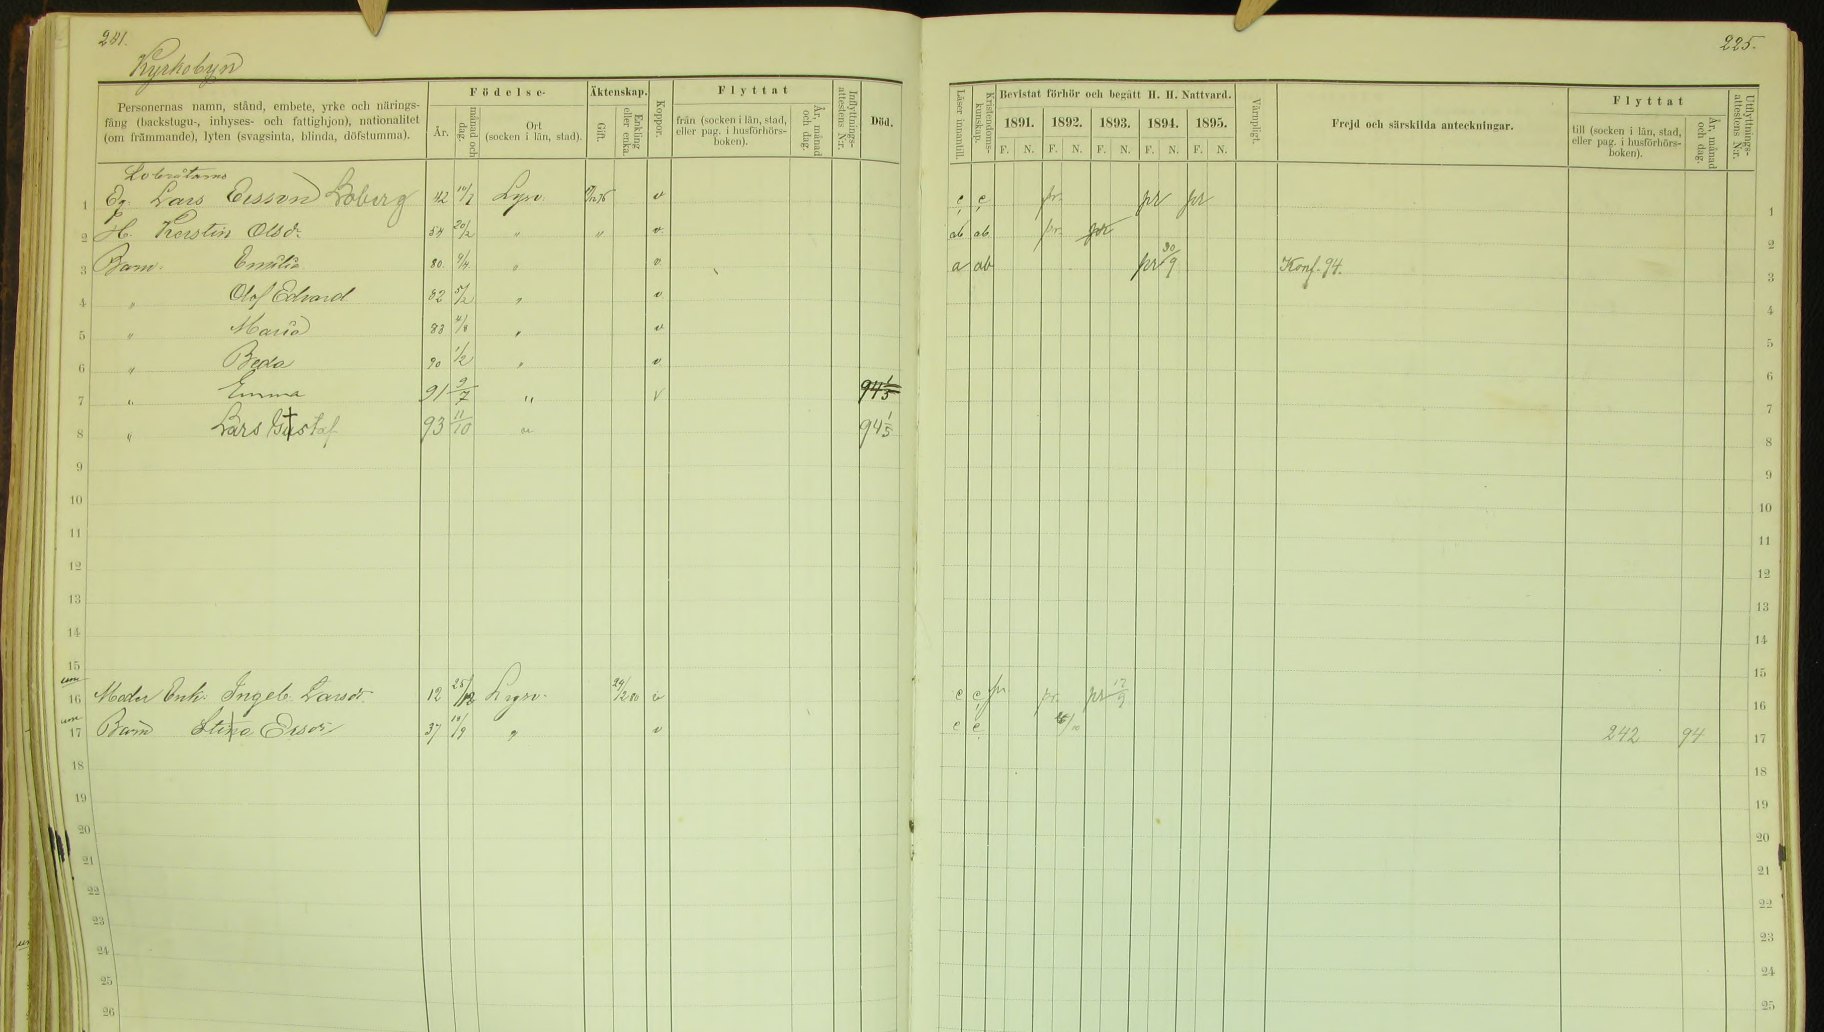 281.
225.
Kyrkobyn
Personernas namn, stånd, embete, yrke och närings-
fång (backstugu-, inhyses- och fattighjon), nationalitet
(om främmande), lyten (svagsinta, blinda, döfstumma).
Födelse-
År.
månad och
dag.
Ort
(socken i län, stad).
Äktenskap.
Gift.
Enkling
eller enka.
Koppor.
Flyttat
från (socken i län, stad,
eller pag. i husförhörs-
boken).
År, månad
och dag.
Inflyttnings-
attestens N:r.
Död.
Läser innantill.
Kristendoms-
kunskap.
Bevistat förhör och begått H. H. Nattvard.
1891. 1892. 1893. 1894. 1895.
F. N. F. N. F. N. F. N. F. N.
Värnpligt.
Frejd och särskilda anteckningar.
Flyttat
till (socken i län, stad,
eller pag. i husförhörs-
boken).
År, månad
och dag.
Utflyttnings-
attestens N:r.
1 Eg. Lars Ersson Loberg 42 10/7 v pr pr pr 1
2 H. Kerstin Olsdr 54 20/2 " " v ab ab pr pr 2
3 Barn. Emilia 80. 9/4 " v a ab pr 30/9 Konf. 94. 3
4 " Olof Edvard 82 5/2 " v 4
5 " Maria 83 4/8 " v 5
6 " Beda 90 1/2 " v 6
7 " Emma 91 9/7 " v 94 1/5 7
8 " Lars Gustaf 93 11/10 " 94 1/5 8
9 9
10 10
11 11
12 12
13 13
14 14
15 15
16 Moder Enk. Ingeb. Larsdr 12 25/12 v pr pr. pr 17/9 16
17 Barn Stina Ersdr 37 10/9 " v 242 94 17
18 18
19 19
20 20
21 21
22 22
23 23
24 24
25 25
26